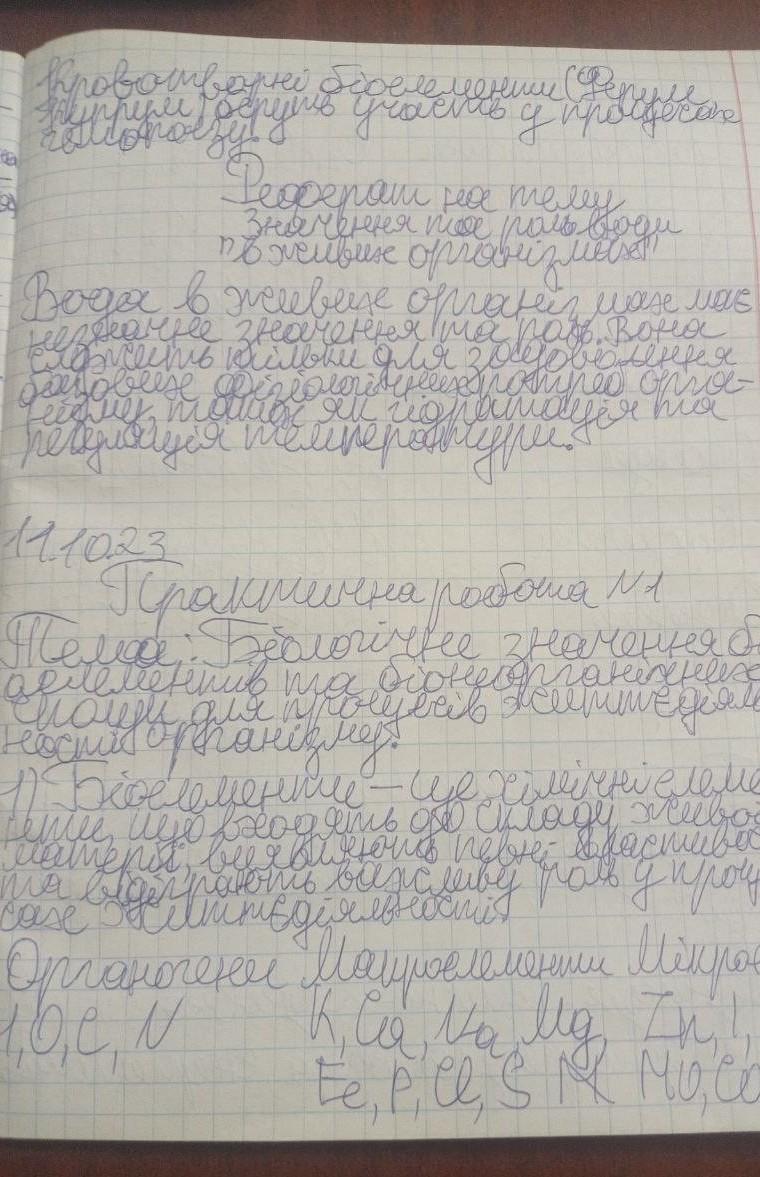 Кровотворні біоелементи (Ферум
Купрум) беруть участь у процесах
гемопоезу.
Реферат на тему
Значення та роль води
"в живих організмах"
Вода в живих організмах має
незначне значення та роль. Вона
служить тільки для задоволення
базових фізіологічних потреб орга-
нізму, таких як гідратація та
регуляція температури.
11.10.23
Практична робота N1
Тема: Біологічне значення бі
оелементів та біонеорганічних
сполук для процесів життєдіяль
ності організму.
1) Біоелементи – це хімічні елеме
нти, що входять до складу живої
матерії, виявляють певні властивос
та відіграють важливу роль у проце
сах життєдіяльності.
Органогени Макроелементи Мікрое
H, O, C, N K, Ca, Na, Mg, Zn, I,
Fe, P, Cl, S MO, Co